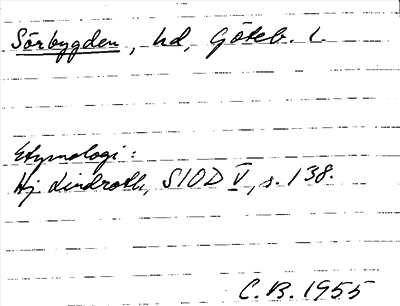 Sörbygden, hd, Göteb. l.
Etymologi:
Hj. Lindroth, SIOD V, s. 138.
C. B. 1955